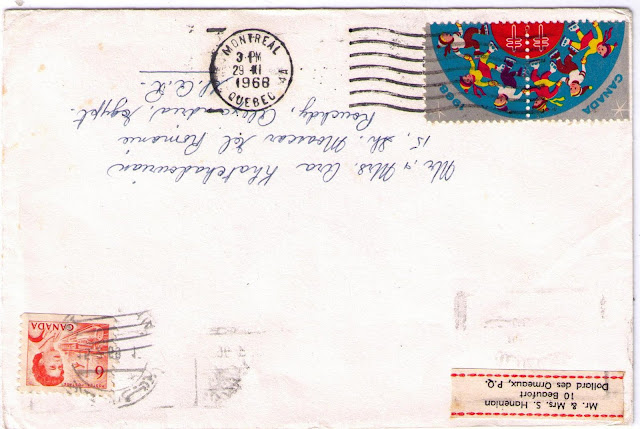 MONTREAL
3 PM
29 XI
1968
QUEBEC
CANADA
1968
Mr. & Mrs. S. Hanenian
10 Beaufort
Dollard des Ormeaux, P.Q.
6
CANADA
Mr. & Mrs. Ara Khatchadourian
15, Sh. Moascar El Romanie
Rouchdy, Alexandria, Egypt.
U.A.R.